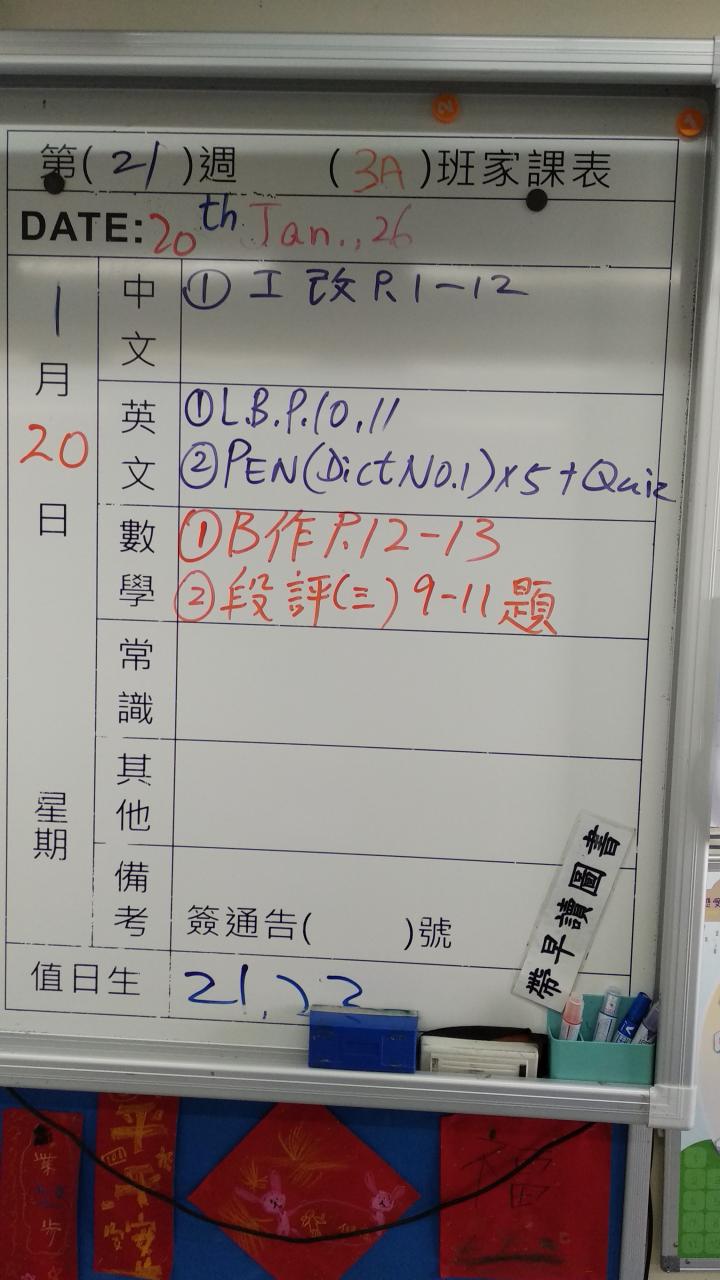 第(21)週 (3A)班家課表
DATE:20th Jan., 26
1月20日
星期
中文
① 工改 P.1-12
英文
① L.B.P.10,11
② PEN(Dict No.1)x5+Quiz
數學
① B作 P.12-13
② 段評(三) 9-11題
常識
其他
備考
簽通告( )號
帶早讀圖書
值日生
21, 22
平平安安
福